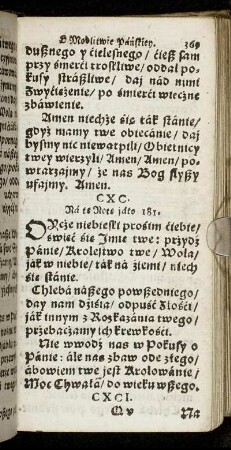 O Modlitwie Páńskiey. 369
dusznego y ćielesnego / ćiesz sam
przy śmierći troskliwe / oddal po-
kusy strászliwe / day nád nimi
Zwyćiężenie / po śmierći wieczne
zbáwienie.
Amen niechże się ták stánie /
gdyż mamy twe obiecánie / daj
bysmy nic niewątpili / Obietnicy
twey wierzyli / Amen / Amen / po-
wtarzajmy / że nas Bog słyszy
ufajmy. Amen.
CXC.
Ná tę Notę jáko 181.
OYcze niebieski prosim ćiebie /
święć się Imię twe: przydź
Pánie / Krolestwo twe / Wola /
ják w niebie / ták ná źiemi / niech
się stánie.
Chlebá nászego powszedniego /
day nam dźisia / odpuść złośći /
ják innym z Rozkazánia twego /
przebaczamy ich krewkośći.
Nie wwodź nas w Pokusy o
Pánie: ále nas zbaw ode złego /
ábowiem twe jest Krolowánie /
Moc Chwałá / do wieku wszego.
CXCI.
Q v Ná